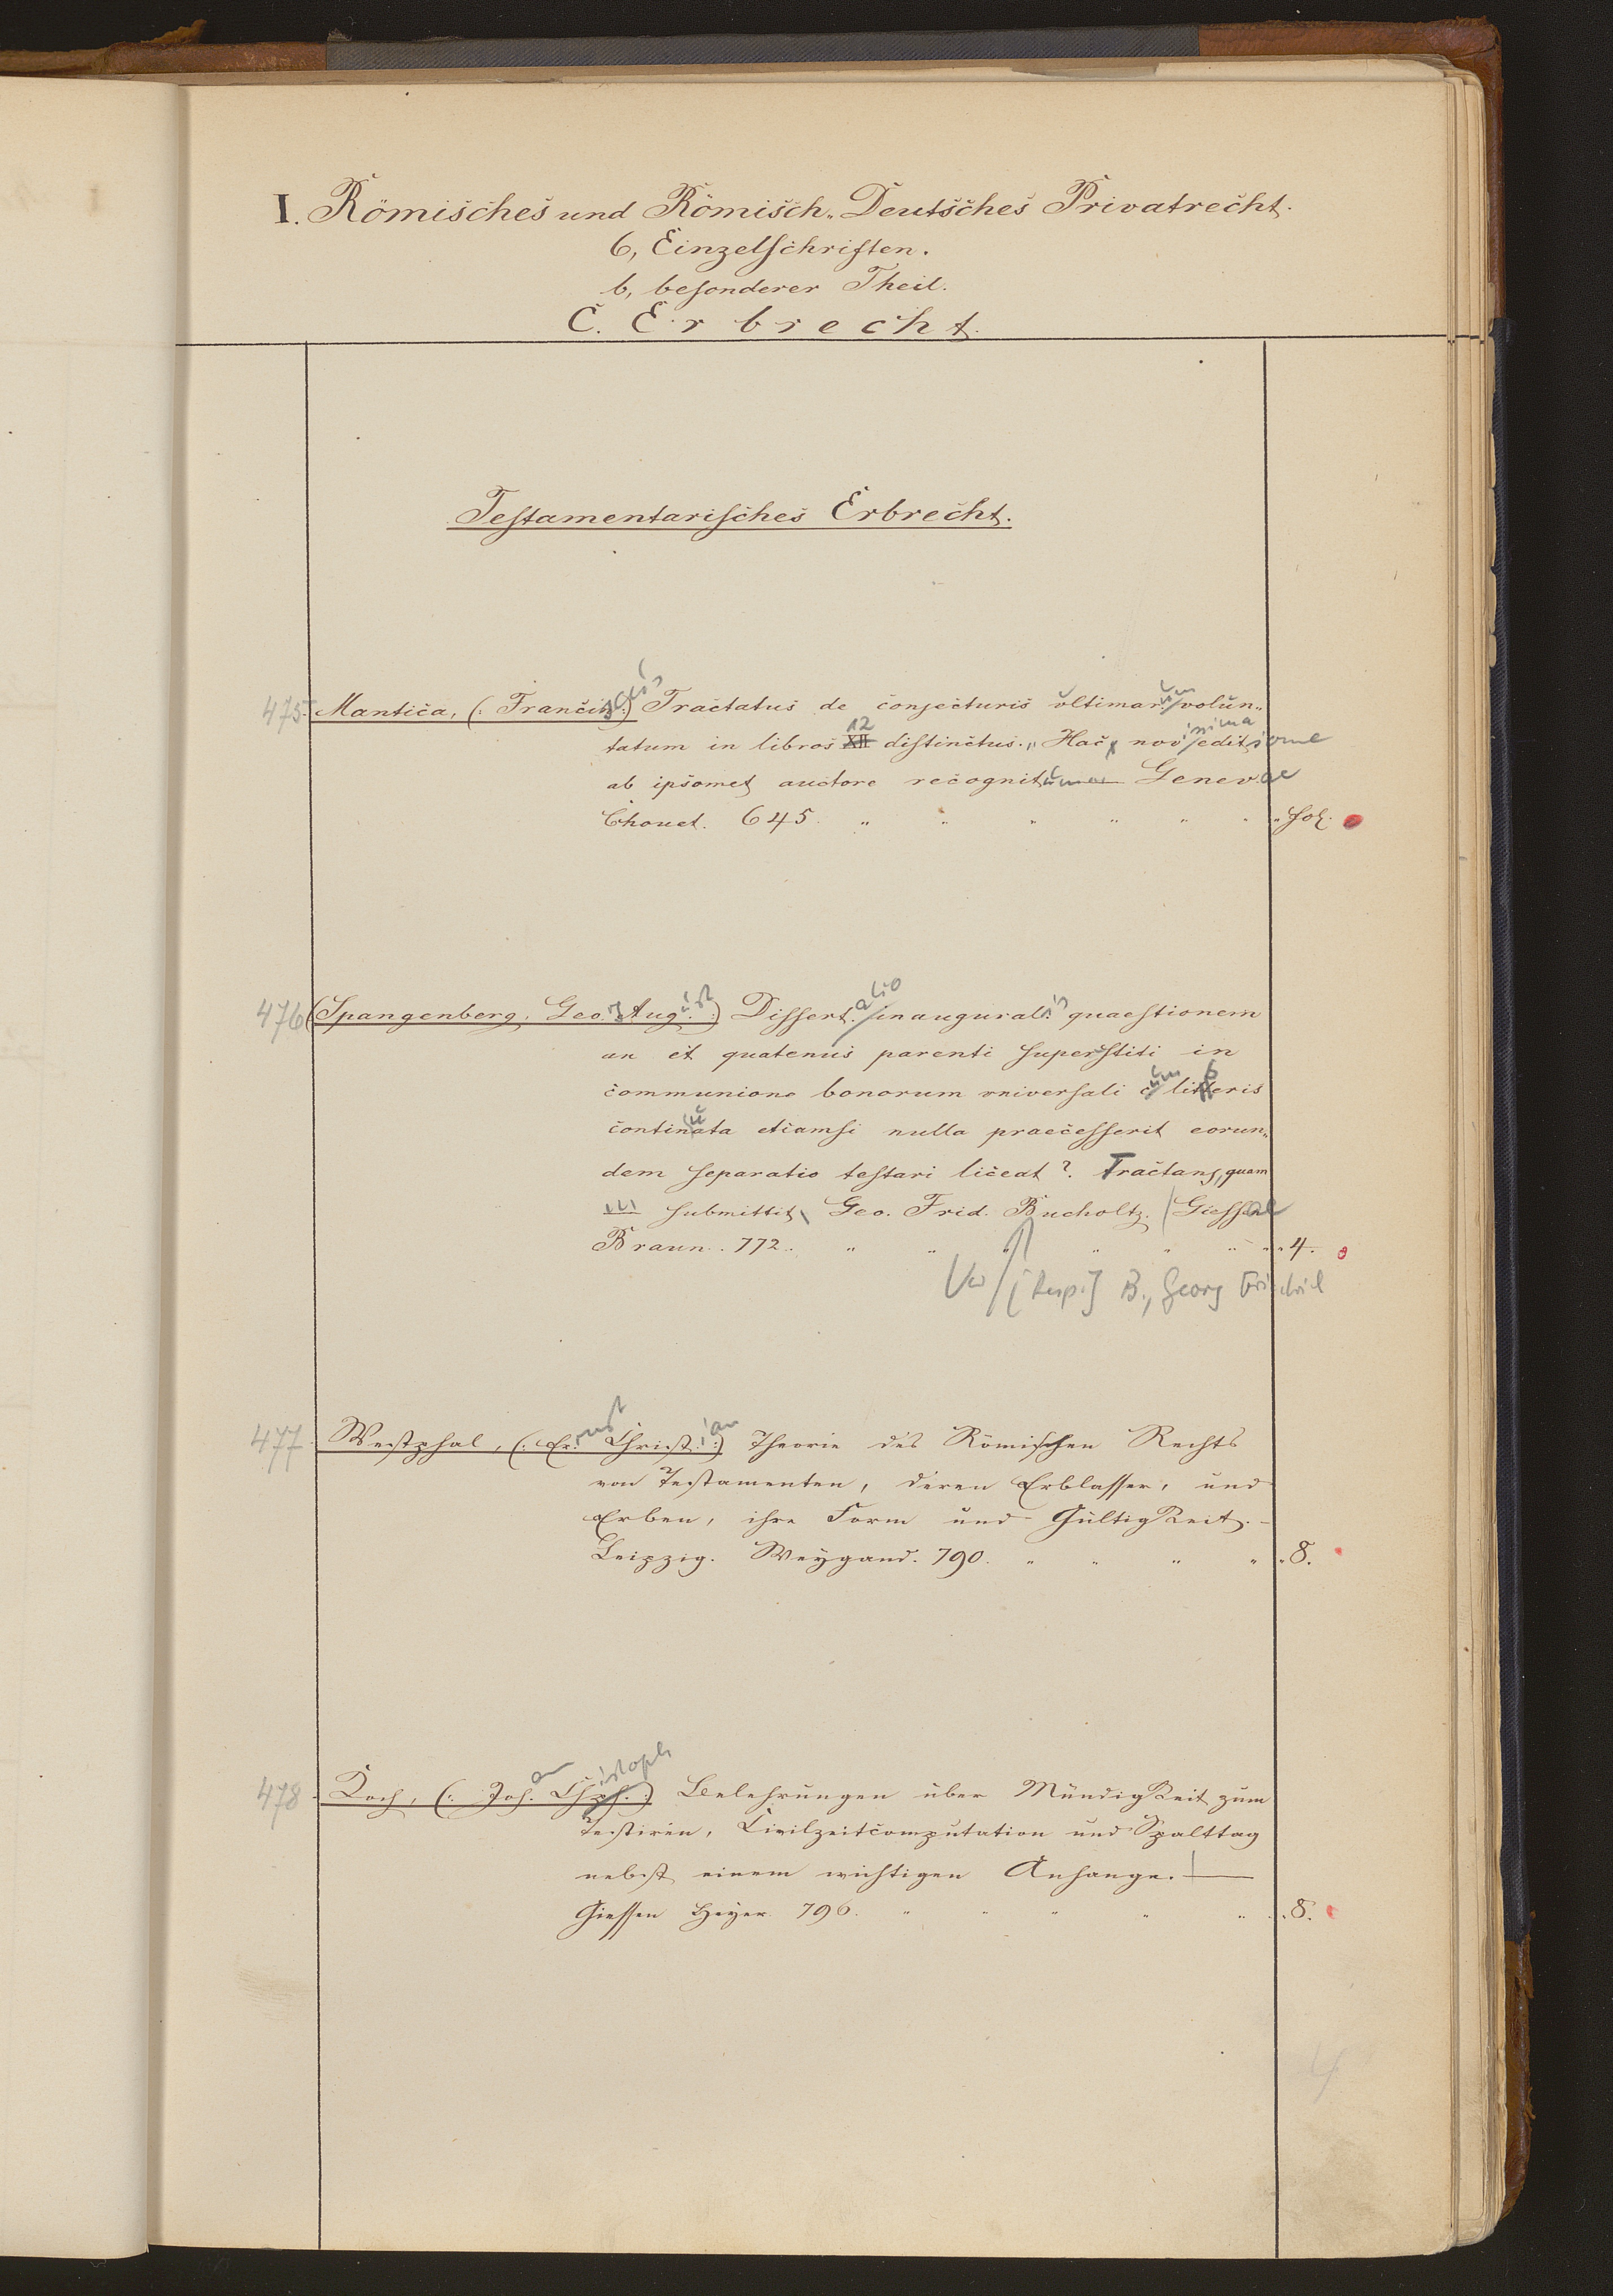 I. Römisches und Römisch-Deutsches Privatrecht.
6, Einzelschriften.
b, besonderer Theil.
C. Erbrecht.
Testamentarisches Erbrecht.
475. Mantica, (: Francis :) Tractatus de conjecturis ultimar. volun-
tatum in libros 12 distinctus. Hac novissima editione
ab ipsomet auctore recognit Genevae
Chouet. 645. " " " " " " " fol.
476 (Spangenberg, Georg August :) Dissertatio inauguralis quaestionem
an et quatenus parenti superstiti in
communione bonorum universali cum liberis
continuata etiamsi nulla praecesserit eorun-
dem separatio testari liceat? Tractans, quam
submittit Geo. Frid. Bucholtz. Giessae
Braun. 772. " " " " " " " 4.
[Resp.] B., Georg Friedrich
477. Westphal, (: Ernst Christian :) Theorie des Römischen Rechts
von Testamenten, deren Erblasser, und
Erben, ihre Form und Gültigkeit. –
Leipzig. Weygand. 790. " " " " " 8.
478. Koch, (: Johan Christoph :) Belehrungen über Mündigkeit zum
Testiren, Civilzeitcomputation und Spalttag
nebst einem wichtigen Anhange. —
Giessen Heyer 796. " " " " " " 8.
4